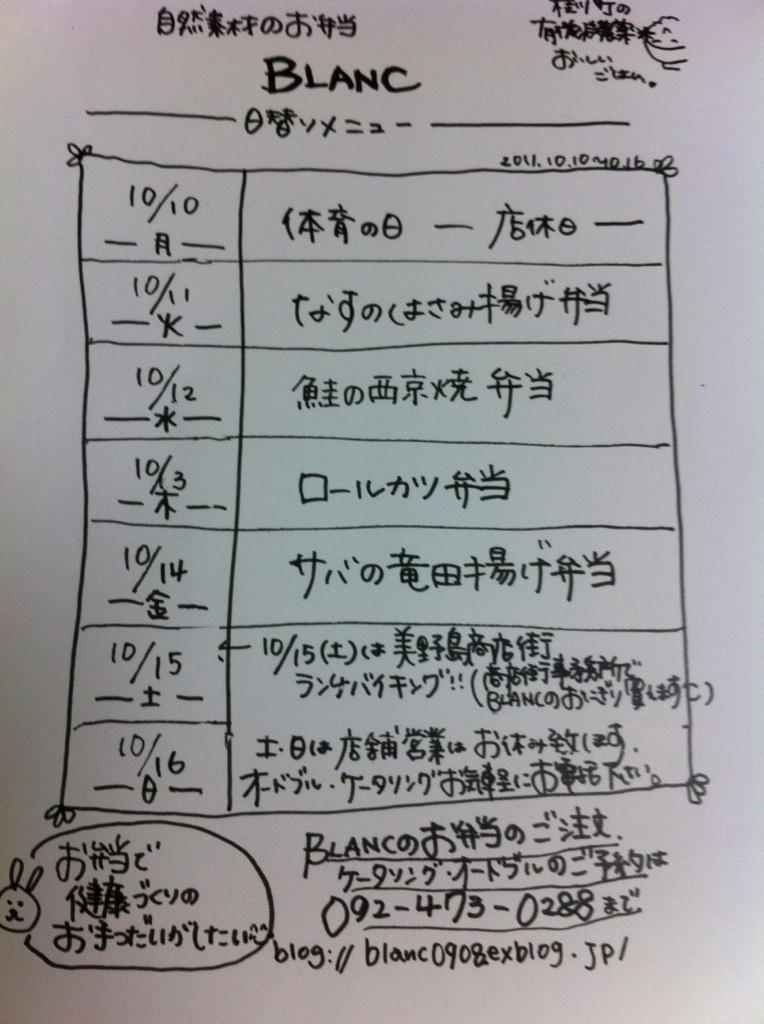 自然素材のお弁当
桂川町の
有機野菜
おいしい
ごはん。
BLANC
日替ソメニュー
2011.10.10〜10.16
10/10
月
体育の日 — 店休日 —
10/11
火
なすのはさみ揚げ弁当
10/12
水
鮭の西京焼弁当
10/13
木
ロールカツ弁当
10/14
金
サバの竜田揚げ弁当
10/15
土
←10/15(土)は美野島商店街
ランチバイキング!!(商店街事務所で
BLANCのおにぎり買えます)
10/16
日
土・日は店舗営業はお休み致します.
オードブル・ケータリングお気軽にお電話下さい。
お弁当で
健康づくりの
おてつだいがしたい
BLANCのお弁当のご注文.
ケータリング・オードブルのご予約は
092-473-0288まで
blog://blanc0908exblog.jp/